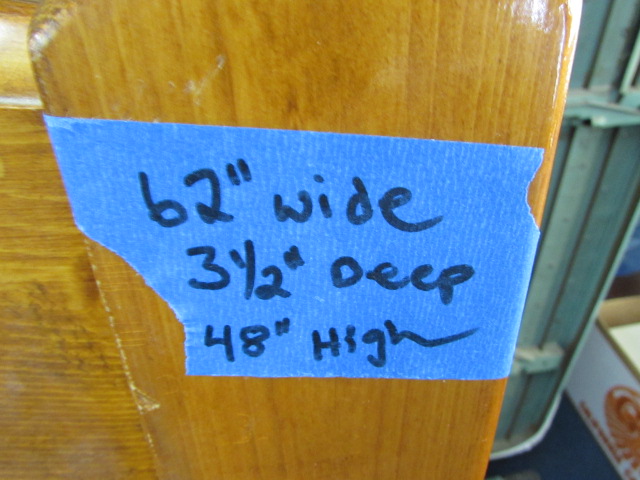 62" wide
3 1/2" Deep
48" High